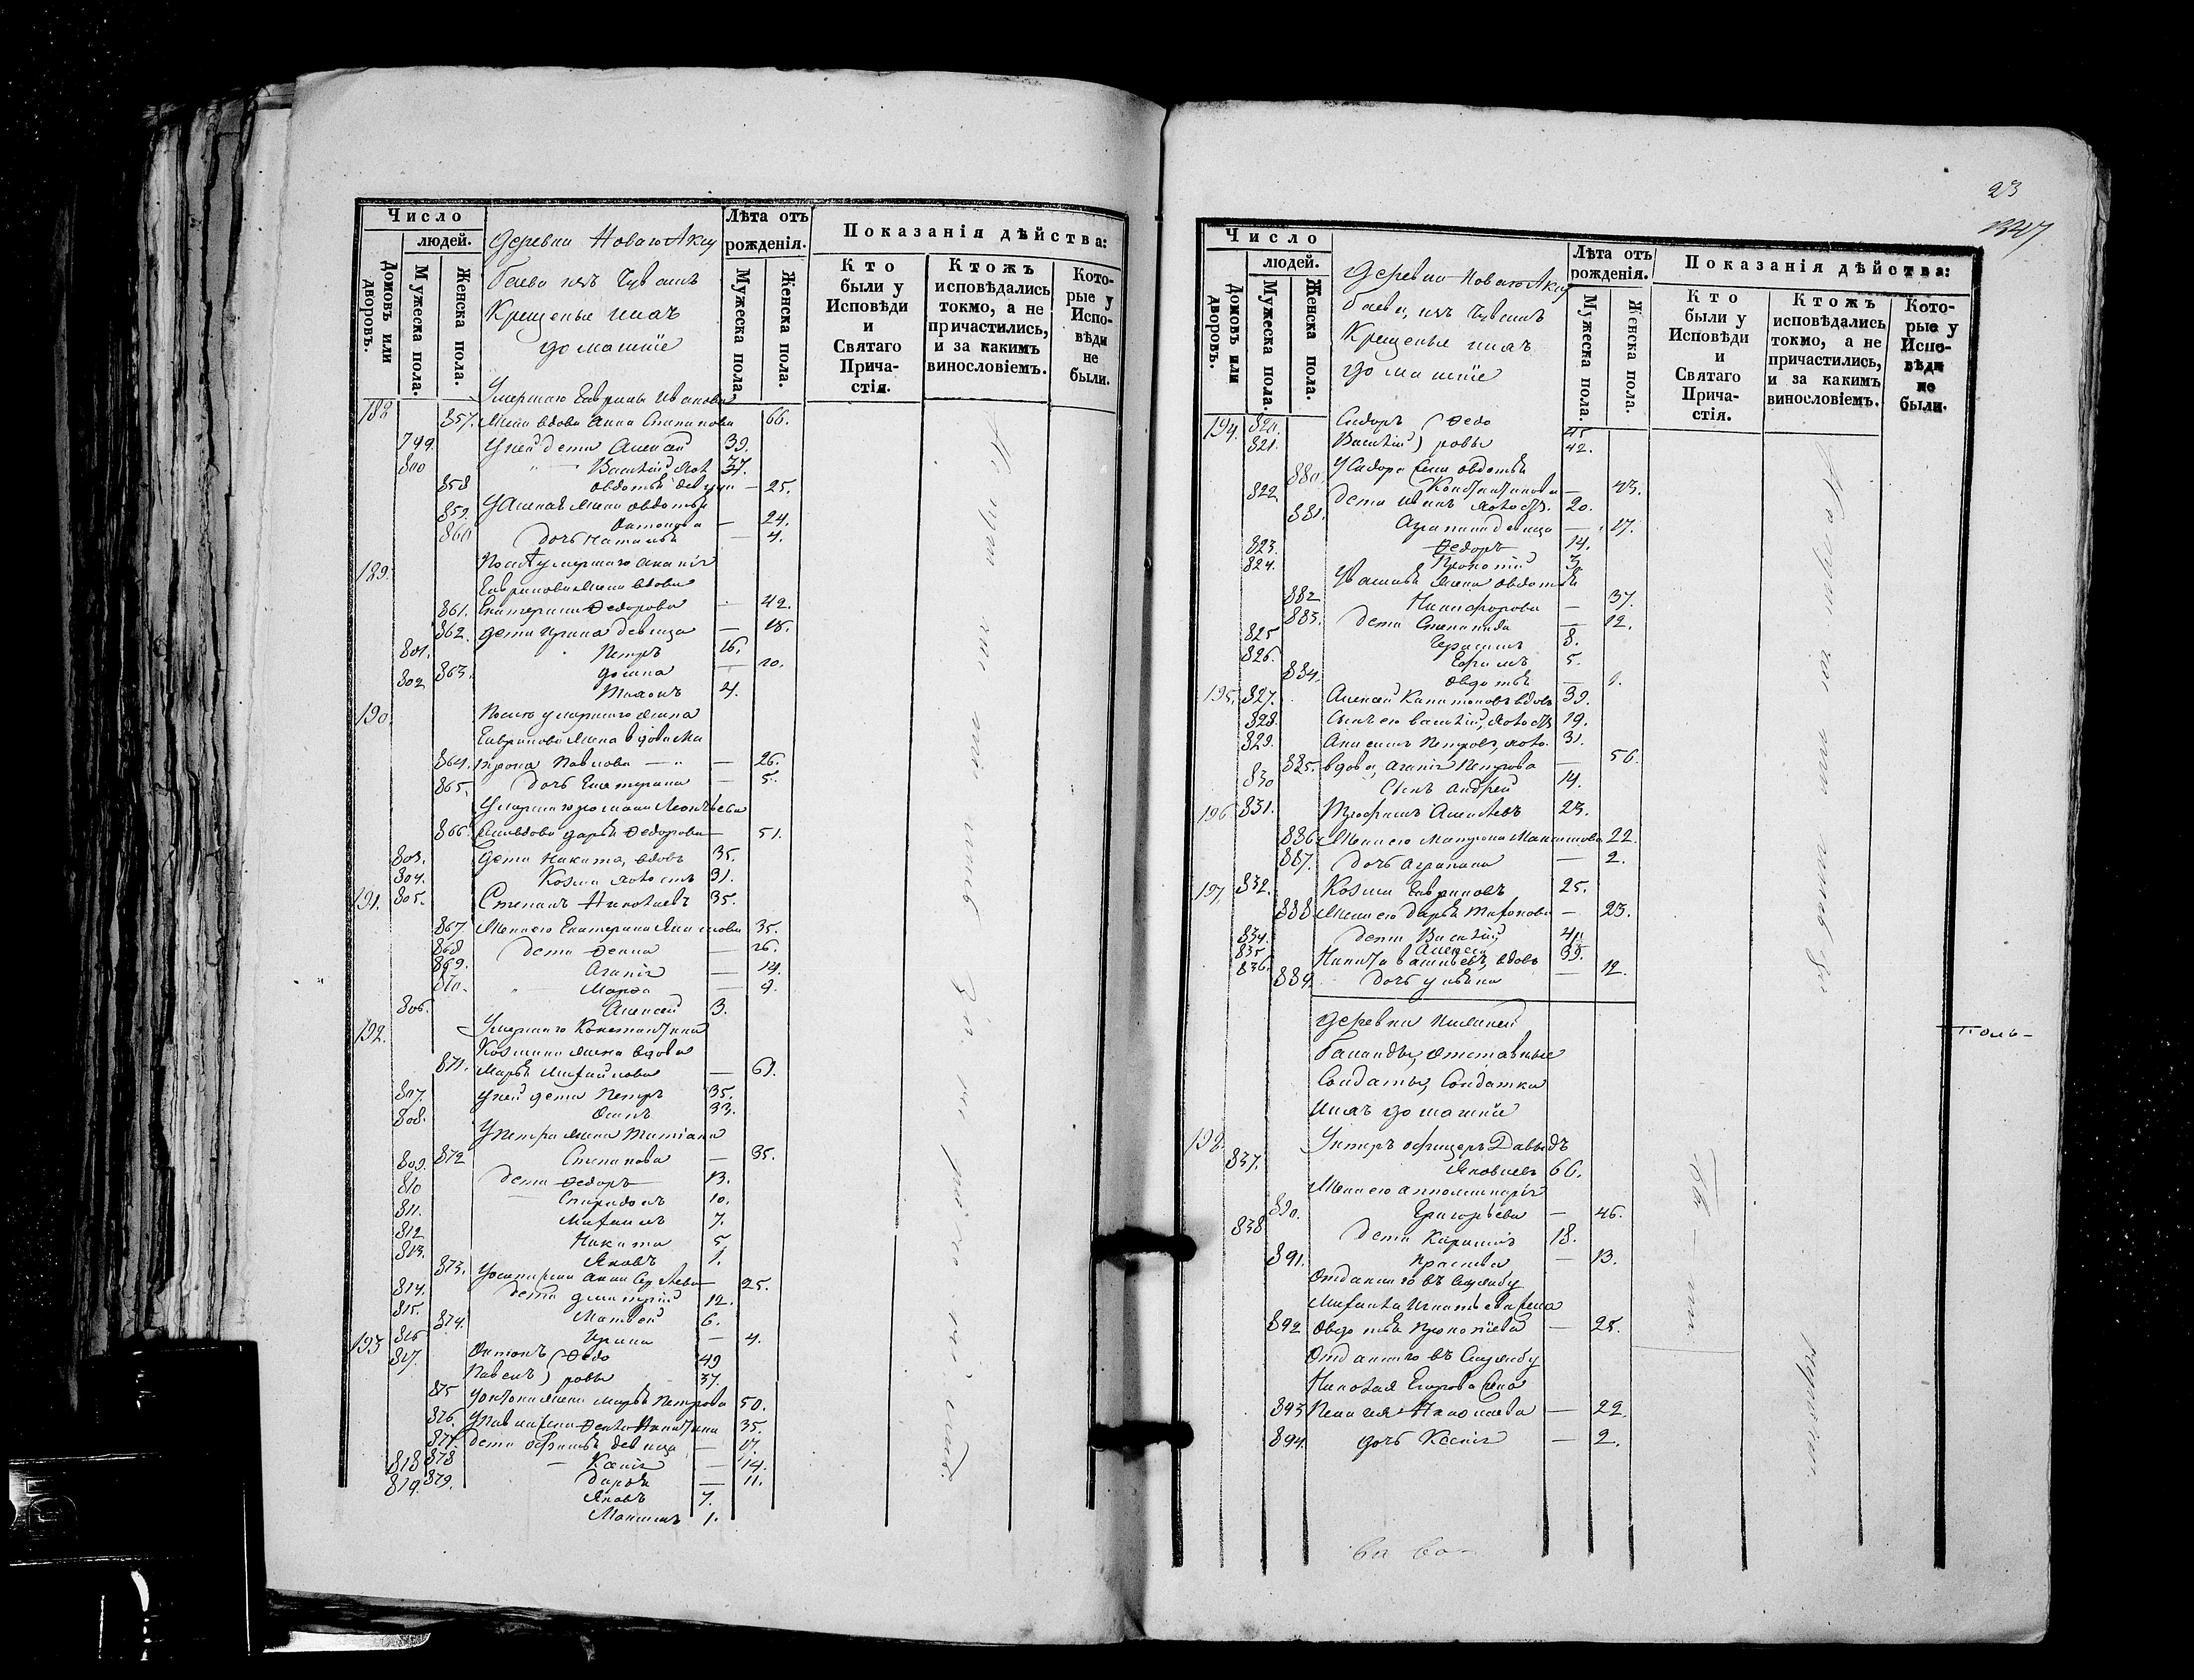 Число
людей.
Домовъ или дворовъ.
Мужеска пола.
Женска пола.
Деревни Новаго Аксу
баева изъ Чувашъ
Крещеные и ихъ
домашніе
Лѣта отъ рожденія.
Мужеска пола.
Женска пола.
Показанія дѣйства:
Кто были у Исповѣди и Святаго Причастія.
Ктожъ исповѣдались токмо, а не причастились, и за какимъ винословіемъ.
Которые у Исповѣди не были.
188 Умершаго Гаврилы Иванова
857. жена вдова Анна Степанова 66.
799. У ней дети Алексей 39.
800 Василій 37.
858 Овдотья девица — 25.
У Алексея жена Овдотья
859. Антонова — 24.
860 дочь Наталья — 4.
189. После умершаго Ананія
Гаврилова жена вдова
861. Екатерина Федорова — 42.
862. дети Ирина девица — 18.
801. Петръ 16.
863. Домна — 10.
802 Тихонъ 4.
190. После умершаго
Гаврилова жена вдова Ма
864. трона Павлова — 26.
865. дочь Екатерина — 5.
Умершаго Романа Леонтьева
866. жена вдова Дарья Федорова — 51.
803. дети Никита, вдовъ 35.
804. Козма холостъ 31.
191. 805. Степанъ Николаевъ 35.
867. Жена его Екатерина 35.
868 дети Фекла — 16.
869. Агапія — 14.
870. Марфа — 9.
806. Алексей 3.
192. Умершаго Константина
Козмина жена вдова
871. Марья Михайлова — 61.
807. У ней дети Петръ 35.
808. Осипъ 33.
У Петра жена Татіана
872 Степанова — 35.
809. дети Федоръ 13.
810 Спиридонъ 10.
811. Михаилъ 7.
812 Никита 5.
813. Яковъ 1.
873. У Осипа жена Анна Сергеева — 25.
814. дети Дмитрій 12.
815. Матвей 6.
874. Ирина — 4.
193 816 Антонъ (Федо 49
817. Павелъ) ровы 37.
875 У Антона жена Марья Петрова 50.
876. У Павла жена Фекла Никитина 35.
877. дети Офимья девица — 17.
878 Ксенія — 14.
879. Дарья — 11.
818 Яковъ 7.
819. Максимъ 1.
23
Число
людей.
Домовъ или дворовъ.
Мужеска пола.
Женска пола.
Деревни Новаго Аксу
баева, изъ Чувашъ
Крещеные и ихъ
домашніе
Лѣта отъ рожденія.
Мужеска пола.
Женска пола.
Показанія дѣйства:
Кто были у Исповѣди и Святаго Причастія.
Ктожъ исповѣдались токмо, а не причастились, и за какимъ винословіемъ.
Которые у Исповѣди не были.
194. 820. Сидоръ (Федо 45
821. Василій) ровы 42.
У Сидора жена Овдотья
880. Константинова — 43.
822 дети Иванъ холостъ. 20.
881. Агрипина девица — 17.
823. Федоръ 14.
824. Прокопій 3.
У Василья жена Овдотья
882 Никифорова — 37.
883. дети Степанида — 12.
825 Герасимъ 8.
826. Ефимъ 5.
884. Овдотья — 1.
195. 827. Алексей Капитоновъ вдовъ 39.
828. Сынъ его Василій, холостъ 19.
829. Анисимъ Петровъ, холо. 31.
885. вдова, Агапія Петрова — 56.
830 Сынъ Андрей 14.
196. 831. Трофимъ Алексеевъ 23.
886. Жена его Матрона Максимова 22.
887. дочь Агрипина — 2.
197. 832. Козма Гавриловъ 25.
888. Жена его Дарья Тихонова — 23.
834. дети Василій 4
835 Алексей
836. Никита Васильевъ, вдовъ 39.
889. дочь Ульяна — 12.
деревни
отставные
Солдаты, Солдатки
и ихъ домашніе
198. Унтеръ офицеръ Давыдъ
837. Яковлевъ 66.
Жена его Апполинарія
890. Григорьева — 46.
838 дети 18.
891. — 13.
Отданнаго въ службу
Михаила Игнатьева жена
892 Овдотья Прокопіева — 25.
Отданнаго въ службу
Николая Егорова жена
893 Пелагея Николаева — 22.
894. дочь Ксенія — 2.